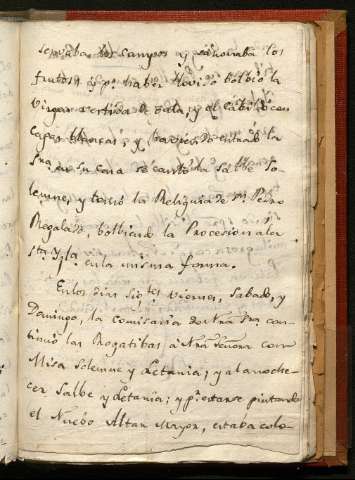 secaba los campos y sazonaba los
frutos; y pr. haber llovido bolbió la
Virgen vestida de Gala, y el Cabildo con
Capas blancas; y haviendo entrado la
Sra. en su Casa se cantó la Salbe So-
lemne, y tomó la Reliquia de Sn. Pedro
Regalado, bolbiendo la Procesion a la
Sta. Yga. en la misma forma.
En los dias sigtes. Viernes, Sabado, y
Domingo, la Comisaria de Nra. Sra. con-
tinuó las Rogatibas a Nra Señora con
Misa Solemne y Letania; y al anoche-
cer Salbe y Letania; y pr. estarse pintando
el Nuebo Altar Mayor, estaba colo-